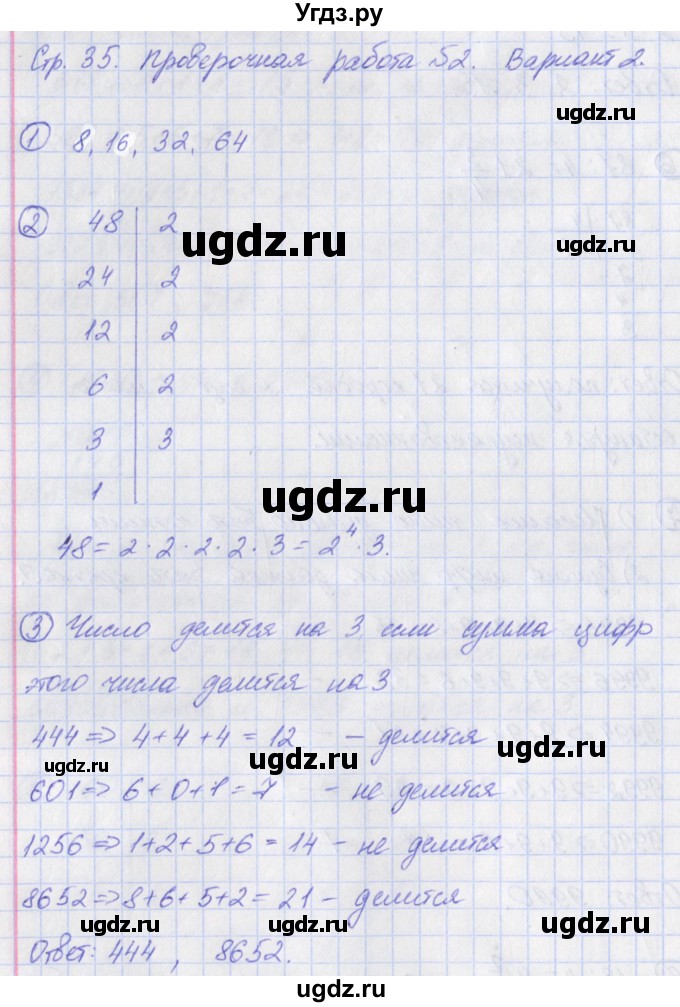 Угдз.ру
Стр. 35. Проверочная работа №2. Вариант 2.
ugdz.ru
① 8, 16, 32, 64
② 48 | 2
ugdz.ru
ugdz.ru
24 | 2
12 | 2
6 | 2
3 | 3
1
ugdz.ru
48 = 2 · 2 · 2 · 2 · 3 = 2⁴ · 3.
③ Число делится на 3 если сумма цифр
этого числа делится на 3
ugdz.ru
444 => 4 + 4 + 4 = 12 – делится
ugdz.ru
601 => 6 + 0 + 1 = 7 – не делится
1256 => 1 + 2 + 5 + 6 = 14 – не делится
ugdz.ru
ugdz.ru
8652 => 8 + 6 + 5 + 2 = 21 – делится
Ответ: 444 , 8652.
ugdz.ru